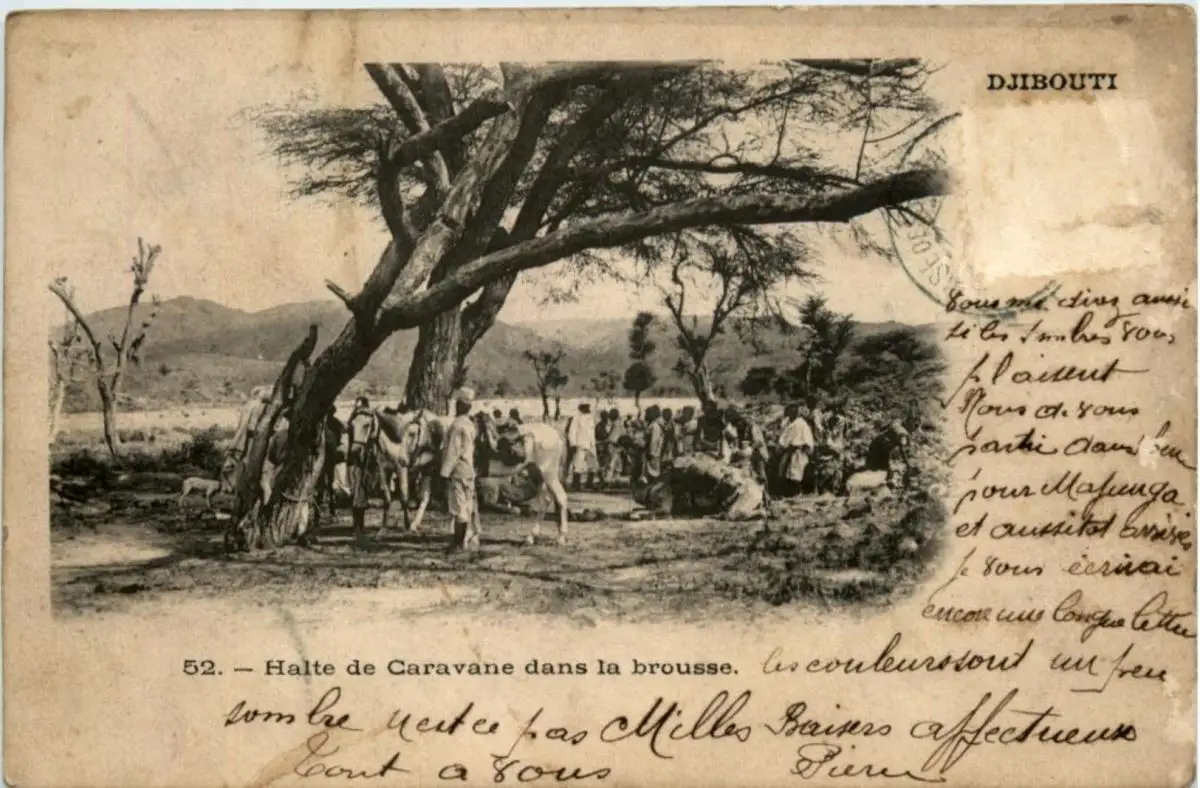 DJIBOUTI
Vous me direz aussi
si les timbres vous
plaisent
Nous devons
partir dans
pour Majunga
et aussitot arrivés
je vous écrirai
encore une longue lettre
52. — Halte de Caravane dans la brousse.
les couleurs sont un peu
sombre n'est ce pas Milles Baisers affectueux
Tout a vous Pierre